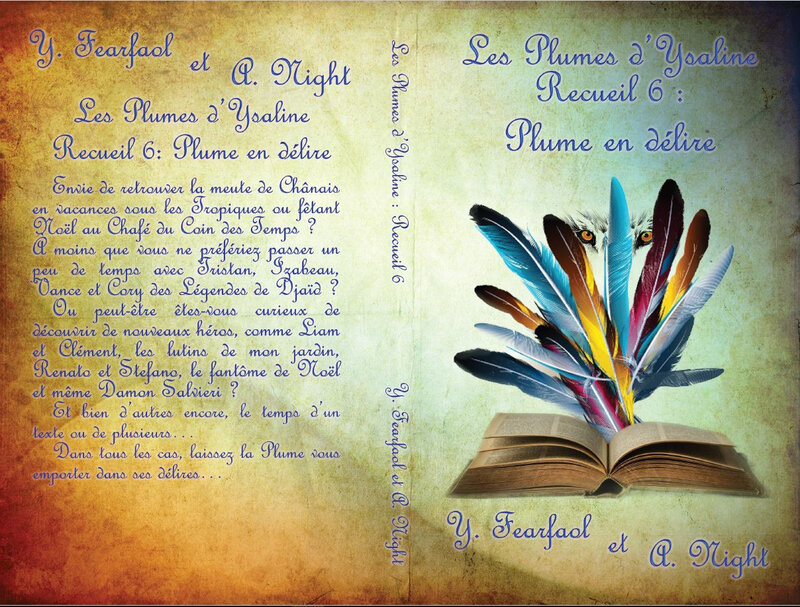 Y. Fearfaol
et
A. Night
Les Plumes d'Ysaline
Recueil 6: Plume en délire
Envie de retrouver la meute de Chânais
en vacances sous les Tropiques ou fêtant
Noël au Chafé du Coin des Temps ?
A moins que vous ne préfériez passer un
peu de temps avec Tristan, Izabeau,
Vance et Cory des Légendes de Djaïd ?
Ou peut-être êtes-vous curieux de
découvrir de nouveaux héros, comme Liam
et Clément, les lutins de mon jardin,
Renato et Stefano, le fantôme de Noël
et même Damon Salvieri ?
Et bien d'autres encore, le temps d'un
texte ou de plusieurs...
Dans tous les cas, laissez la Plume vous
emporter dans ses délires...
Les Plumes d'Ysaline : Recueil 6
Y. Fearfaol et A. Night
Les Plumes d'Ysaline
Recueil 6 :
Plume en délire
Y. Fearfaol
et
A. Night